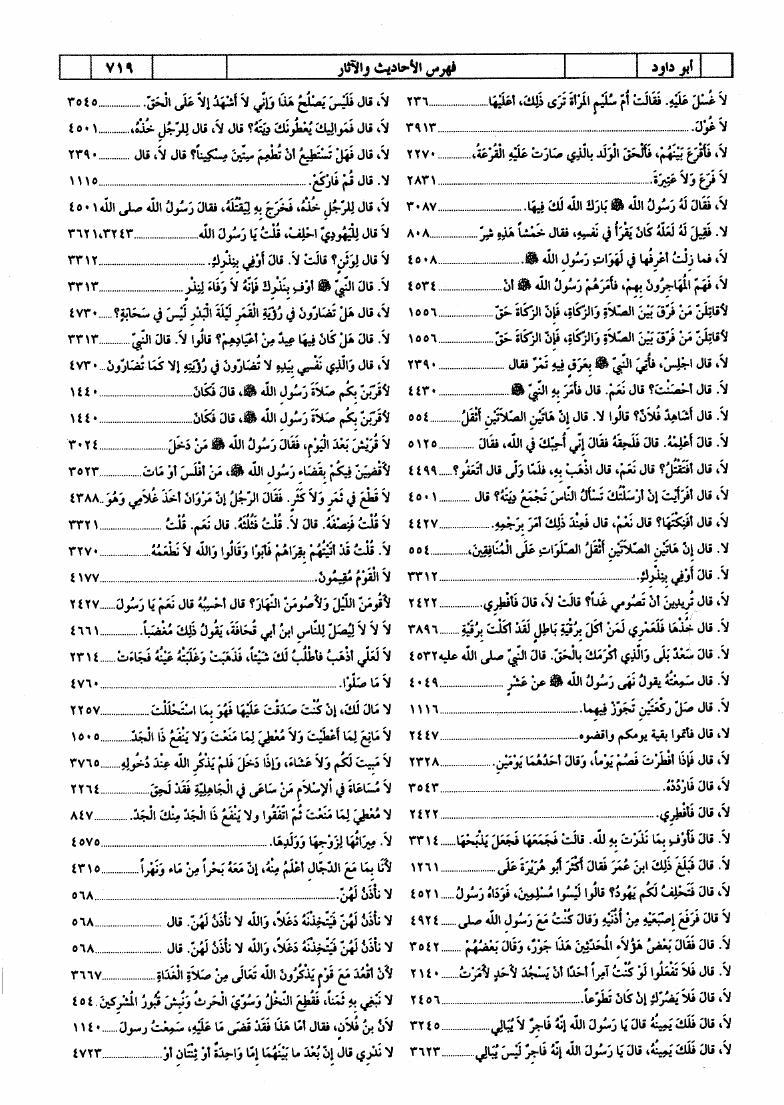 أبو داود
فهرس الأحاديث والآثار
٧١٩
لاَ غُسْلَ عَلَيْهِ. فَقَالَتْ أُمّ سُلَيْمٍ المَرْأةُ تَرَى ذَلِكَ، أعَلَيْهَا ........ ٢٣٦
لاَ غُوْلَ ........ ٣٩١٣
لاَ، فَأَقْرَعَ بَيْنَهُمْ، فَألْحَقَ الْوَلَدَ بالّذِي صَارَتْ عَلَيْهِ الْقُرْعَةُ، ........ ٢٢٧٠
لاَ فَرَعَ وَلاَ عَتِيرَةَ ........ ٢٨٣١
لاَ، فَقَالَ لَهُ رَسُولُ الله ﷺ بَارَكَ الله لَكَ فِيهَا. ........ ٣٠٨٧
لا. فَقِيلَ لَهُ لَعَلّهُ كَانَ يَقْرَأُ في نَفْسِهِ، فقال خَمْشاً هَذِهِ شرّ ........ ٨٠٨
لاَ، فما زِلْتُ أعْرِفُها في لَهَوَاتِ رَسُولِ الله ﷺ. ........ ٤٥٠٨
لاَ، فَهَمّ المُهَاجِرُونَ بِهِمْ، فأَمَرَهُمْ رَسُولُ الله ﷺ أنْ ........ ٤٥٣٤
لأقاتِلَنّ مَنْ فَرّقَ بَيْنَ الصّلاَةِ وَالزّكَاةِ، فَإِنّ الزّكَاةَ حَقّ ........ ١٥٥٦
لأقاتِلَنّ مَنْ فَرّقَ بَيْنَ الصّلاَةِ وَالزّكَاةِ، فَإِنّ الزّكَاةَ حَقّ ........ ١٥٥٦
لاَ، قال اجْلِسْ، فأُتِيَ النّبيّ ﷺ بِعَرَقٍ فِيهِ تَمْرٌ فقال ........ ٢٣٩٠
لاَ. قال أحْصَنْتَ؟ قال نَعَمْ. قال فأَمَرَ بِهِ النّبيّ ﷺ ........ ٤٤٣٠
لاَ. قال أشَاهِدٌ فُلاَنٌ؟ قالُوا لا. قال إنّ هَاتَيْنِ الصّلاَتَيْنِ أثْقَلُ ........ ٥٥٤
لاَ. قالَ أعْلِمْهُ. قالَ فَلَحِقَهُ فقالَ إنّي أُحِبّكَ في الله، فقَالَ ........ ٥١٢٥
لاَ، قال أفَتَقْتُلُ؟ قال نَعَمْ، قال اذْهَبْ بِهِ، فَلمّا وَلّى قال أتَعْفُو؟ ........ ٤٤٩٩
لاَ، قال أفَرَأيْتَ إنْ أرْسَلْتُكَ تَسْألُ النّاسَ تَجْمَعُ دِيَتَهُ؟ قال ........ ٤٥٠١
لاَ، قال أفَنِكْتَهَا؟ قال نَعَمْ، قال فَعِنْدَ ذَلِكَ أمَرَ بِرَجْمِهِ. ........ ٤٤٢٧
لا. قال إنّ هَاتَيْنِ الصّلاَتَيْنِ أثْقَلُ الصّلَوَاتِ عَلَى المُنَافِقِينَ، ........ ٥٥٤
لاَ. قالَ أوْفِي بِنَذْرِكِ. ........ ٣٣١٢
لاَ، قال تُرِيدِينَ أنْ تَصُومِي غَداً؟ قالتْ لاَ، قال فأَفْطِرِي. ........ ٢٤٢٢
لاَ. قال خُذْهَا فَلَعَمْرِي لَمَنْ أكَلَ بِرُقْيَةِ بَاطِلٍ لَقَدْ أكَلْتَ بِرُقْيَةِ ٣٨٩٦
لاَ. قال سَعْدٌ بَلَى وَالّذِي أكْرَمَكَ بالْحَقّ. قالَ النّبيّ صلى الله عليه ٤٥٣٢
لاَ. قال سَمِعْتُهُ يقُولُ نَهَى رَسُولُ الله ﷺ عنْ عَشْرٍ ........ ٤٠٤٩
لاَ. قال صَلّ رَكْعَتَيْنِ تَجَوّزْ فِيهِما. ........ ١١١٦
لا، قال فأتموا بقية يومكم واقضوه ........ ٢٤٤٧
لاَ، قال فَإذَا أفْطَرْتَ فَصُمْ يَوْماً، وَقالَ أحَدُهُمَا يَوْمَيْنِ. ........ ٢٣٢٨
لاَ، قالَ فَارْدُدْهُ. ........ ٣٥٤٣
لاَ، قالَ فَأفْطِرِي. ........ ٢٤٢٢
لاَ. قالَ فَأَوْفِ بِمَا نَذَرْتَ بِهِ لله. قالَتْ فَجَمَعَهَا فَجَعَلَ يَذْبَحُهَا ٣٣١٤
لاَ. قالَ فَبَلَغَ ذَلِكَ ابنَ عُمَرَ فَقال أَكْثَرَ أبُو هُرَيْرَةَ عَلَى ........ ١٢٦١
لاَ، قالَ فَتَحْلِفُ لَكُم يَهُودُ؟ قالُوا لَيْسُوا مُسْلِمِينَ، فَوَدَاهُ رَسُولُ ٤٥٢١
لاَ قالَ فَرَفَعَ إصْبَعَيْهِ مِنْ أُذُنَيْهِ وَقالَ كُنْتُ مَعَ رَسُولِ الله صلى ٤٩٢٤
لاَ. قالَ فَقَالَ بَعْضُ هَؤُلاَءِ المُحَدّثِينَ هَذَا جَوْرٌ، وَقالَ بَعْضُهُمْ ٣٥٤٢
لاَ. قال فَلاَ تَفْعَلُوا لَوْ كُنْتُ آمِراً أحَدًا أنْ يَسْجُدَ لأحَدٍ لأمَرْتُ ........ ٢١٤٠
لاَ، قال فَلاَ يَضُرّكِ إنْ كَانَ تَطَوّعاً. ........ ٢٤٥٦
لاَ، قال فَلَكَ يَمِينُهُ قالَ يَا رَسُولَ الله إنّهُ فَاجِرٌ لاَ يُبَالِي ........ ٣٢٤٥
لاَ، قال فَلَكَ يَمِينُهُ، قالَ يَا رَسُولَ الله إنّهُ فَاجِرٌ لَيْسَ يُبَالِي ........ ٣٦٢٣
لاَ، قال فَلَيْسَ يَصْلُحُ هَذَا وَإنّي لاَ أشْهَدُ إلاّ عَلَى الْحَقّ. ........ ٣٥٤٥
لاَ، قال فَمَوالِيكَ يُعْطُونَكَ دِيَتَهُ؟ قال لاَ، قال لِلرّجُلِ خُذْهُ، ........ ٤٥٠١
لاَ، قال فَهَلْ تَسْتَطِيعُ أنْ تُطْعِمَ سِتّينَ مِسْكِيناً؟ قال لاَ، قال ........ ٢٣٩٠
لا. قال قُمْ فَارْكَعْ. ........ ١١١٥
لاَ، قال لِلرّجُلِ خُذْهُ، فَخَرَجَ بِهِ لِيَقْتُلَهُ، فقال رَسُولُ الله صلى الله ٤٥٠١
لاَ قال لِلْيَهُودِيّ احْلِفْ، قُلْتُ يَا رَسُولَ الله ........ ٣٦٢١،٣٢٤٣
لاَ، قال لِوَثَنٍ؟ قالَتْ لاَ. قالَ أوْفِي بِنَذْرِكِ. ........ ٣٣١٢
لاَ. قالَ النّبيّ ﷺ أوْفِ بِنَذْرِكَ فإِنّهُ لاَ وَفَاءَ لِنَذْرٍ ........ ٣٣١٣
لاَ، قال هَلْ تُضَارّونَ في رُؤْيَةِ الْقَمَرِ لَيْلَةَ الْبَدْرِ لَيْسَ في سَحَابَةٍ؟ ٤٧٣٠
لاَ. قالَ هَلْ كَانَ فِيهَا عِيدٌ مِنْ أعْيَادِهِمْ؟ قالُوا لاَ. قالَ النّبيّ ........ ٣٣١٣
لاَ، قال وَالّذِي نَفْسِي بِيَدِهِ لا تُضَارّونَ في رُؤْيَتِهِ إلا كَمَا تُضَارّونَ ٤٧٣٠
لأقَرّبَنّ بِكُم صَلاَةَ رَسُولِ الله ﷺ، قالَ فَكَانَ ........ ١٤٤٠
لأقَرّبَنّ بِكُم صَلاَةَ رَسُولِ الله ﷺ، قالَ فَكَانَ ........ ١٤٤٠
لاَ قُرَيْشَ بَعْدَ الْيَوْمِ، فَقَالَ رَسُولُ الله ﷺ مَنْ دَخَلَ ........ ٣٠٢٤
لأقْضِيَنّ فِيكُمْ بِقَضَاءِ رَسُولِ الله ﷺ، مَنْ أفْلَسَ أوْ مَاتَ ........ ٣٥٢٣
لاَ قَطْعَ في ثَمَرٍ وَلاَ كَثَرٍ. فَقَالَ الرّجُلُ إنّ مَرْوَانَ أخَذَ غُلاَمِي وَهُوَ ٤٣٨٨
لاَ قُلْتُ فَنِصْفُهُ. قالَ لاَ. قُلْتُ فَثُلُثُهُ. قالَ نَعَم. قُلْتُ ........ ٣٣٢١
لاَ. قُلْتُ قَدْ أتَيْتُهُمْ بِقِرَاهُمْ فَأَبَوْا وَقالُوا وَالله لاَ نَطْعَمُهُ ........ ٣٢٧٠
لاَ الْقَوْمُ مُقِيمُونَ. ........ ٤١٧٧
لأقُومَنّ اللّيْلَ وَلأصُومَنّ النّهَارَ؟ قال أحْسِبُهُ قال نَعَمْ يَا رَسُولَ ٢٤٢٧
لاَ لاَ لاَ لِيُصَلّ لِلنّاسِ ابنُ أبي قُحَافَةَ، يَقُولُ ذَلِكَ مُغْضَباً. ........ ٤٦٦١
لاَ لَعَلّي أذْهَبُ فأَطْلُبُ لَكَ شَيْئاً، فَذَهَبَتْ وَغَلَبَتْهُ عَيْنُهُ فَجَاءَتْ ٢٣١٤
لاَ مَا صَلّوْا. ........ ٤٧٦٠
لا مَالَ لَكَ، إنْ كُنْتَ صَدَقْتَ عَلَيْهَا فَهُوَ بِمَا اسْتَحْلَلْتَ ........ ٢٢٥٧
لاَ مَانِعَ لِمَا أعْطَيْتَ وَلاَ مُعْطِيَ لِمَا مَنَعْتَ وَلا يَنْفَعُ ذَا الْجَدّ ........ ١٥٠٥
لاَ مَبِيتَ لَكُم وَلاَ عَشَاءَ، وَإذَا دَخَلَ فَلَمْ يَذْكُرِ الله عِنْدَ دُخُولِهِ ٣٧٦٥
لاَ مُسَاعَاةَ في الإسْلاَمِ مَنْ سَاعَى في الْجَاهِلِيّةِ فَقَدْ لَحِقَ ........ ٢٢٦٤
لاَ مُعْطِيَ لِمَا مَنَعْتَ ثُمّ اتّفَقُوا ولا يَنْفَعُ ذَا الْجَدّ مِنْكَ الْجَدّ. ........ ٨٤٧
لاَ. مِيرَاثُهَا لِزَوْجِهَا وَوَلَدِهَا. ........ ٤٥٧٥
لأنَا بِمَا مَعَ الدّجّالِ أعْلَمُ مِنْهُ، إنّ مَعَهُ بَحْراً مِنْ مَاء وَنَهْراً ........ ٤٣١٥
لا نأْذَنُ لَهُنّ. ........ ٥٦٨
لا نأْذَنُ لَهُنّ فَيَتّخِذْنَهُ دَغَلاً، وَالله لا نَأْذَنُ لَهُنّ. قال ........ ٥٦٨
لا نأْذَنُ لَهُنّ فَيَتّخِذْنَهُ دَغَلاً، وَالله لا نَأْذَنُ لَهُنّ. قال ........ ٥٦٨
لأنْ أقْعُدَ مَعَ قَوْمٍ يَذْكُرُونَ الله تَعَالَى مِنْ صَلاَةِ الْغَدَاةِ ........ ٣٦٦٧
لا نَبْغِي بِهِ ثَمَناً، فَقُطِعَ النّخْلُ وَسُوّيَ الْحَرثُ وَنُبِشَ قُبُورُ المُشْرِكِينَ ٤٥٤
لأنّ بنُ فُلاَنٍ، فقال أمّا هَذَا فَقَدْ قَضَى مَا عَلَيْهِ، سَمِعْتُ رسولَ ١١٤٠
لا نَدْرِي قال إنّ بُعْدَ ما بَيْنَهُمَا إمّا وَاحِدَةٌ أوْ ثِنْتَانِ أوْ ........ ٤٧٢٣